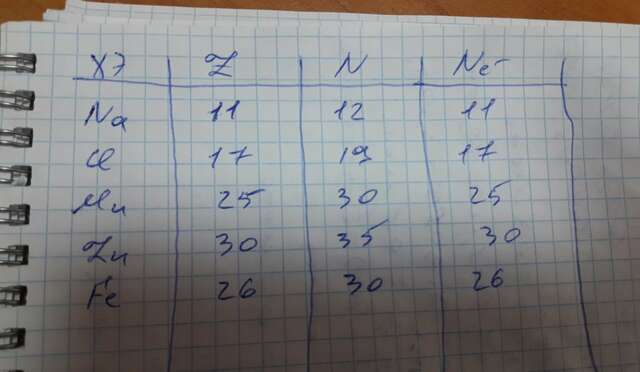 ХЭ Z N Ne⁻
Na 11 12 11
Cl 17 19 17
Mn 25 30 25
Zn 30 35 30
Fe 26 30 26